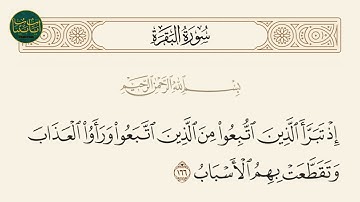 سُورَةُ الْبَقَرَةِ
بِسْمِ اللَّهِ الرَّحْمَٰنِ الرَّحِيمِ
إِذْ تَبَرَّأَ ٱلَّذِينَ ٱتُّبِعُوا۟ مِنَ ٱلَّذِينَ ٱتَّبَعُوا۟ وَرَأَوُا۟ ٱلْعَذَابَ
وَتَقَطَّعَتْ بِهِمُ ٱلْأَسْبَابُ ١٦٦